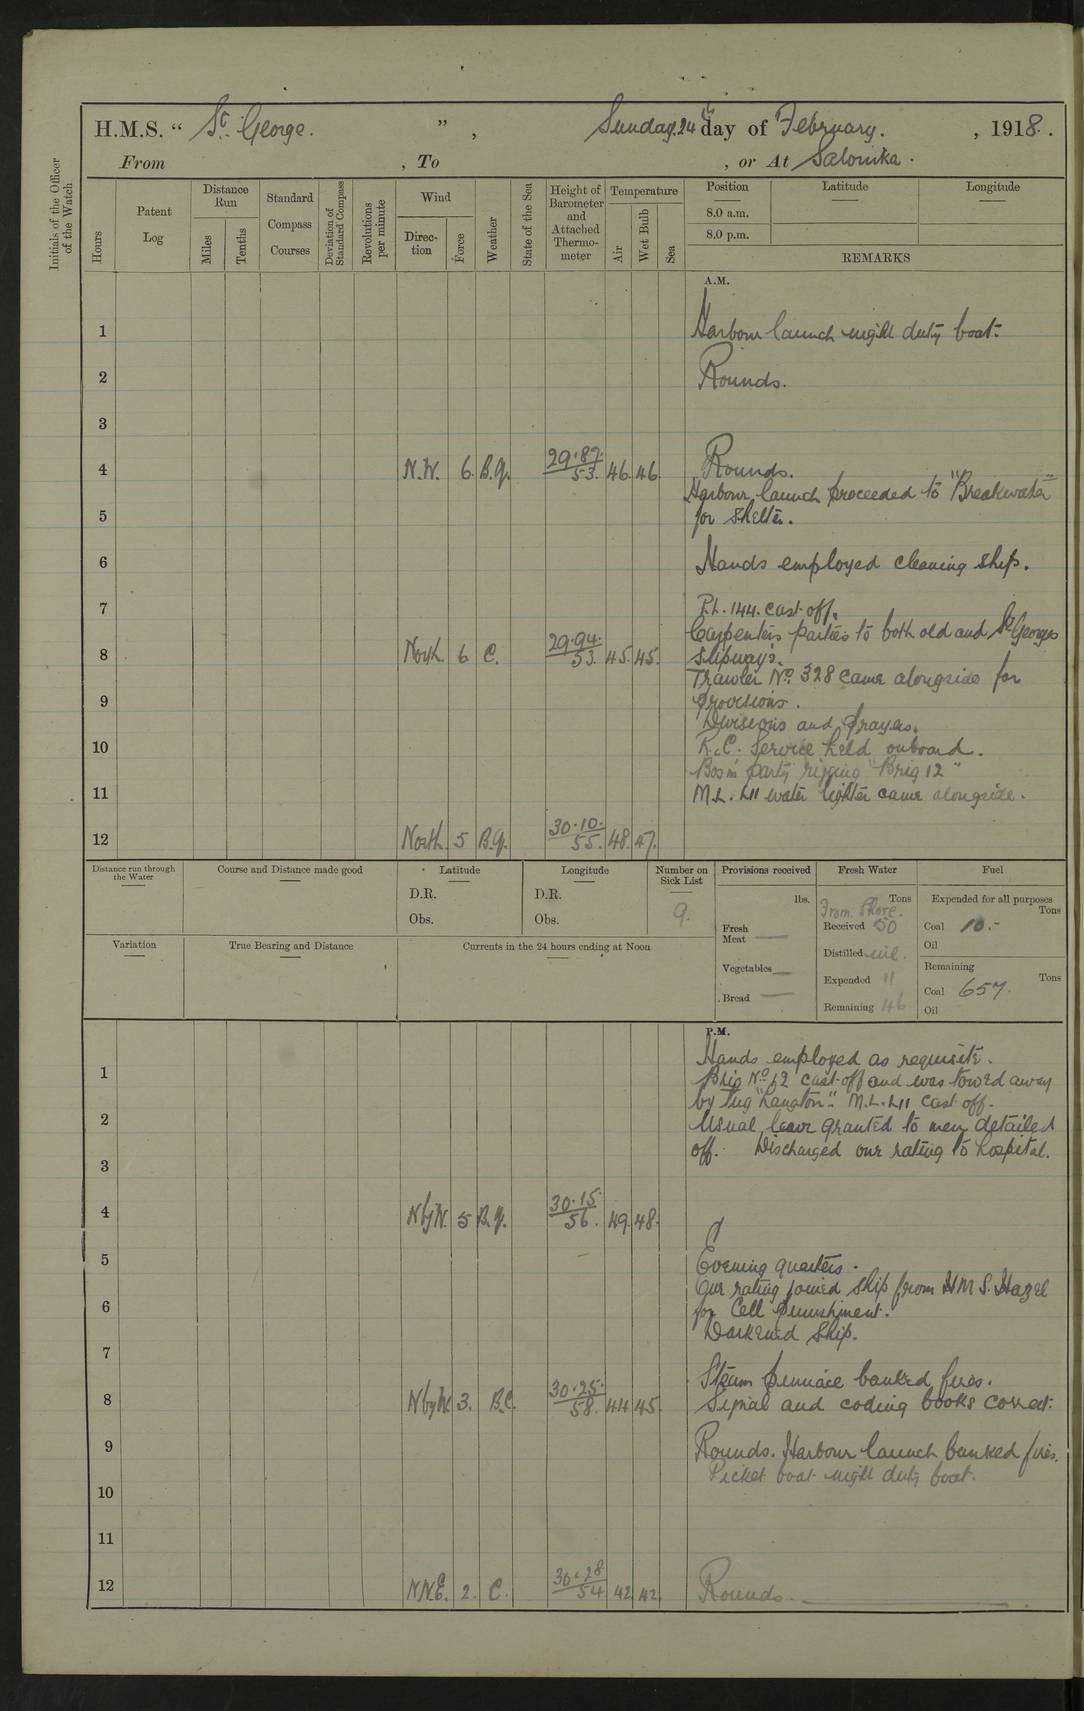 H.M.S. “ St George. ” , Sunday. 24th day of February. , 1918.
From , To , or At Salonika.
Initials of the Officer of the Watch
Hours
Patent Log
Distance Run
Miles
Tenths
Standard Compass Courses
Deviation of Standard Compass
Revolutions per minute
Wind
Direction
Force
Weather
State of the Sea
Height of Barometer and Attached Thermometer
Temperature
Air
Wet Bulb
Sea
Position Latitude Longitude
8.0 a.m.
8.0 p.m.
REMARKS
A.M.
1 Harbour launch night duty boat.
2 Rounds.
3
4 N.W. 6. B.Q. 29.87. 53. 46. 46. Rounds.
Harbour launch proceeded to "Breakwater"
5 for shelter.
6 Hands employed cleaning ship.
7 P.L. 144. cast off.
Carpenters parties to both old and St Georges
8 North 6 C. 29.94. 53. 45. 45. slipways.
Trawler No. 328 came alongside for
9 provisions.
Divisions and prayers.
10 R.C. Service held onboard.
Bosn' party rigging "Brig 12"
11 M.L. L11 water lighter came alongside.
12 North. 5 B.Q. 30.10. 55. 48. 47.
Distance run through the Water
Course and Distance made good
Latitude
D.R.
Obs.
Longitude
D.R.
Obs.
Number on Sick List
9.
Provisions received
lbs.
Fresh Meat —
Vegetables —
Bread —
Fresh Water
Tons
From Shore.
Received 50
Distilled nil.
Expended 11
Remaining 46
Fuel
Expended for all purposes
Tons
Coal 10.-
Oil
Remaining
Tons
Coal 657.
Oil
Variation
True Bearing and Distance
Currents in the 24 hours ending at Noon
P.M.
Hands employed as requisite.
1 Brig No 12 cast off and was towed away
by tug "Langton". M.L. L11 cast off.
2 Usual leave granted to men detailed
3 off. Discharged one rating to hospital.
4 NbyW. 5 B.Q. 30.15. 56. 49. 48.
5 Evening quarters.
One rating joined ship from H.M.S. Hazel
6 for Cell punishment.
Darkened Ship.
7
Steam pinnace banked fires.
8 NbyW. 3. B.C. 30.25. 58. 44 45. Signal and coding books correct.
9 Rounds. Harbour launch banked fires.
Picket boat night duty boat.
10
11
12 N.N.E. 2. C. 30.28 54 42 42. Rounds.